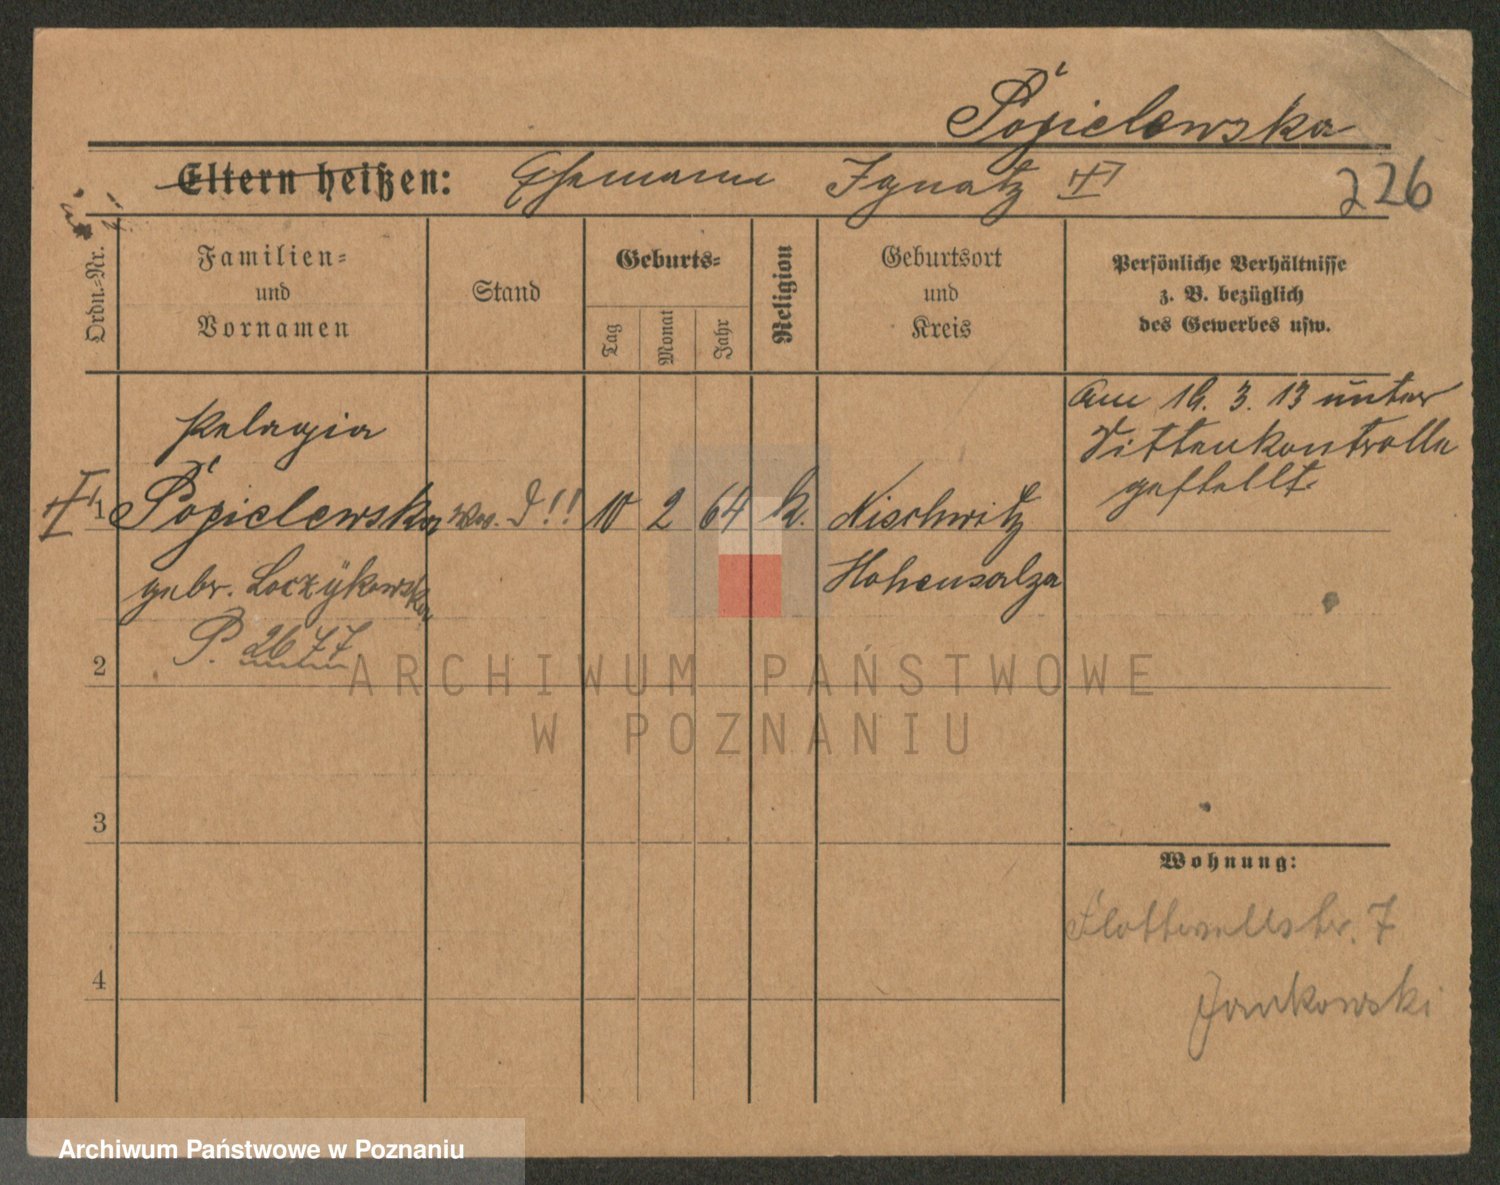 Popielewska
Eltern heißen: Ehemann Ignatz
226
Ordn.-Nr.
Familien-
und
Vornamen
Stand
Geburts-
Tag
Monat
Jahr
Religion
Geburtsort
und
Kreis
Persönliche Verhältnisse
z. B. bezüglich
des Gewerbes usw.
Am 16. 3. 13 unter
Sittenkontrolle
gestellt.
Pelagia
1 Popielewska !! 10 2 64 k. Kischwitz
gebr. Hohensalza
P. 2677
2
ARCHIWUM PAŃSTWOWE
W POZNANIU
3
Wohnung:
Flottwellstr. 7
Jankowski
4
Archiwum Państwowe w Poznaniu